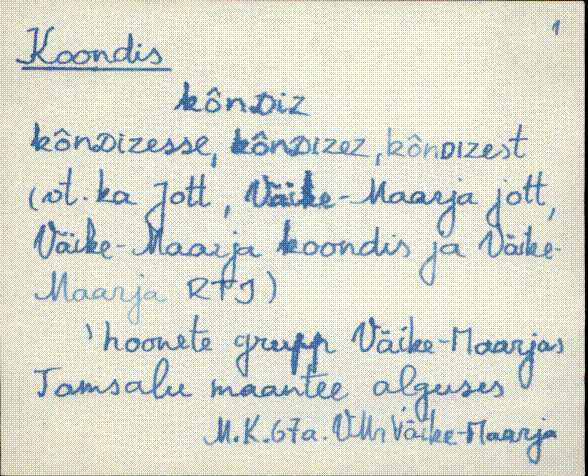 1
Koondis
kônDiz
kônDizesse, kônDIZEZ, kônDIZEst
(vt. ka Jott, Väike-Maarja jott,
Väike-Maarja koondis ja Väike-
Maarja RTJ)
'hoonete grupp Väike-Maarjas
Tamsalu maantee alguses'
M.K. 67a. VMr Väike-Maarja